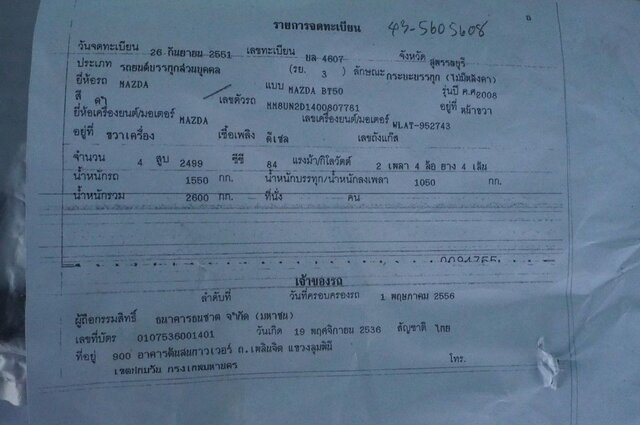 รายการจดทะเบียน 43-5605608
วันจดทะเบียน 26 กันยายน 2551 เลขทะเบียน บล 4607 จังหวัด สุพรรณบุรี
ประเภท รถยนต์บรรทุกส่วนบุคคล (รย. 3 ) ลักษณะ กระบะบรรทุก (ไม่มีหลังคา)
ยี่ห้อรถ MAZDA แบบ MAZDA BT50 รุ่นปี ค.ศ2008
สี ดำ เลขตัวรถ MM8UN2D1400807781 อยู่ที่ หน้าขวา
ยี่ห้อเครื่องยนต์/มอเตอร์ MAZDA เลขเครื่องยนต์/มอเตอร์ WLAT-952743
อยู่ที่ ขวาเครื่อง เชื้อเพลิง ดีเซล เลขถังแก๊ส
จำนวน 4 สูบ 2499 ซีซี 84 แรงม้า/กิโลวัตต์ 2 เพลา 4 ล้อ ยาง 4 เส้น
น้ำหนักรถ 1550 กก. น้ำหนักบรรทุก/น้ำหนักลงเพลา 1050 กก.
น้ำหนักรวม 2600 กก. ที่นั่ง คน
เจ้าของรถ
ลำดับที่ วันที่ครอบครองรถ 1 พฤษภาคม 2556
ผู้ถือกรรมสิทธิ์ ธนาคารธนชาต จำกัด (มหาชน)
เลขที่บัตร 0107536001401 วันเกิด 19 พฤศจิกายน 2536 สัญชาติ ไทย
ที่อยู่ 900 อาคารต้นสนทาวเวอร์ ถ.เพลินจิต แขวงลุมพินี โทร.
เขตปทุมวัน กรุงเทพมหานคร